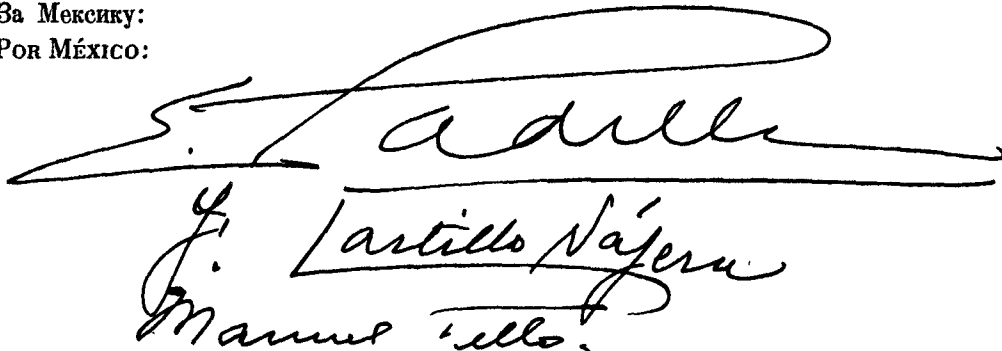 За Мексику:
POR MÉXICO:
E. Padilla
F. Castillo Nájera
Manuel Tello.